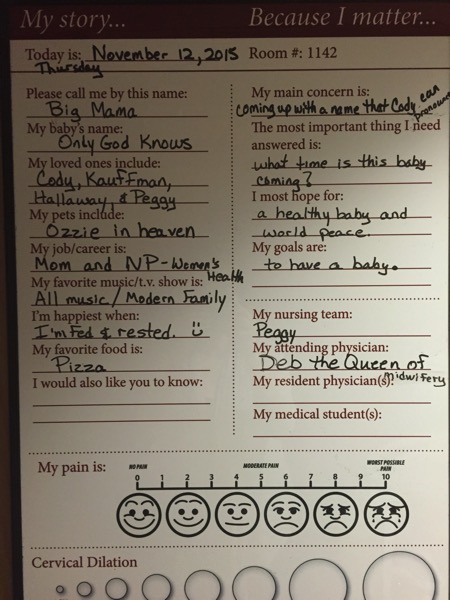 My story...
Because I matter...
Today is: November 12, 2015 Room #: 1142
Thursday
Please call me by this name:
Big Mama
My baby's name:
Only God Knows
My loved ones include:
Cody, Kauffman,
Hallaway, & Peggy
My pets include:
Ozzie in heaven
My job/career is:
Mom and NP-Women's
Health
My favorite music/t.v. show is:
All music/Modern Family
I'm happiest when:
I'm Fed & rested.
My favorite food is:
Pizza
I would also like you to know:
My main concern is:
coming up with a name that Cody can
pronounce
The most important thing I need
answered is:
what time is this baby
coming?
I most hope for:
a healthy baby and
world peace.
My goals are:
to have a baby.
My nursing team:
Peggy
My attending physician:
Deb the Queen of
Midwifery
My resident physician(s):
My medical student(s):
My pain is:
NO PAIN MODERATE PAIN WORST POSSIBLE
PAIN
0 1 2 3 4 5 6 7 8 9 10
Cervical Dilation